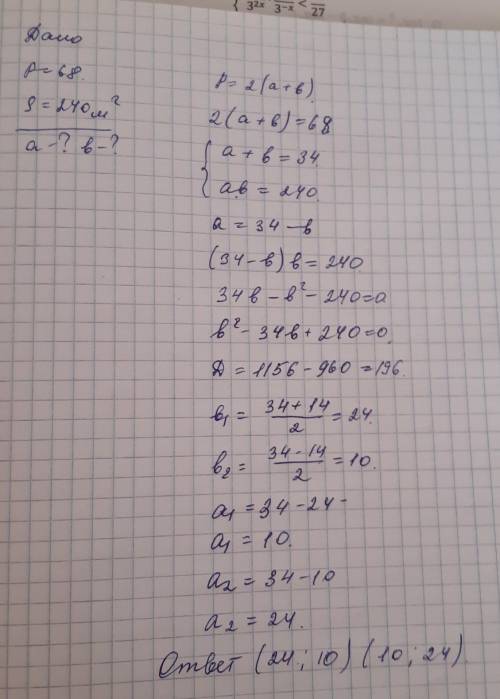 3²ˣ 3⁻ˣ < 27
Дано
P = 68.
S = 240 м²
a - ? в - ?
P = 2(a+в)
2(a+в) = 68
{ a + в = 34
aв = 240.
a = 34 - в
(34 - в) в = 240
34в - в² - 240 = 0
в² - 34в + 240 = 0.
Д = 1156 - 960 = 196.
в₁ = (34 + 14)/2 = 24.
в₂ = (34 - 14)/2 = 10.
a₁ = 34 - 24 -
a₁ = 10.
a₂ = 34 - 10
a₂ = 24.
Ответ (24; 10) (10; 24).